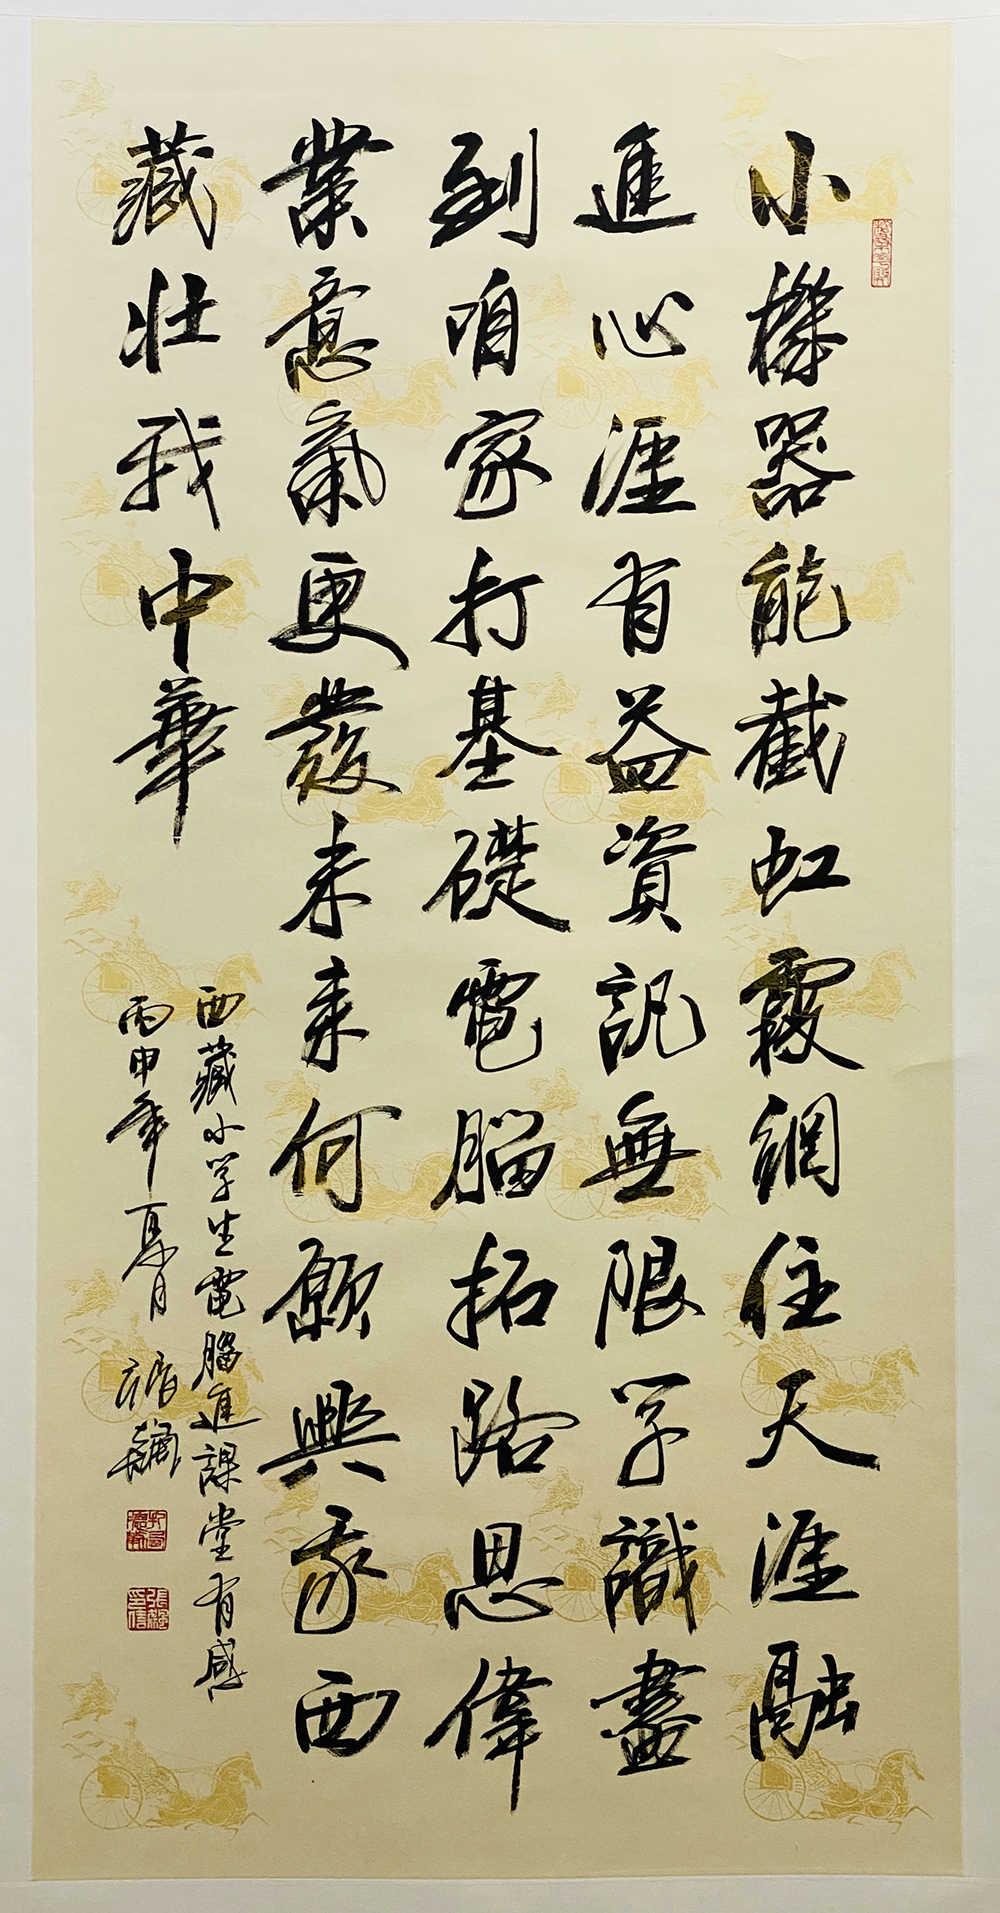 小機器能截虹霞網住天涯融
進心涯有益資訊無限学識盡
到咱家打基礎電腦拓路思偉
業意氣更發未來何願興我西
藏壯我中華
西藏小学生電腦進課堂有感
丙申年夏月